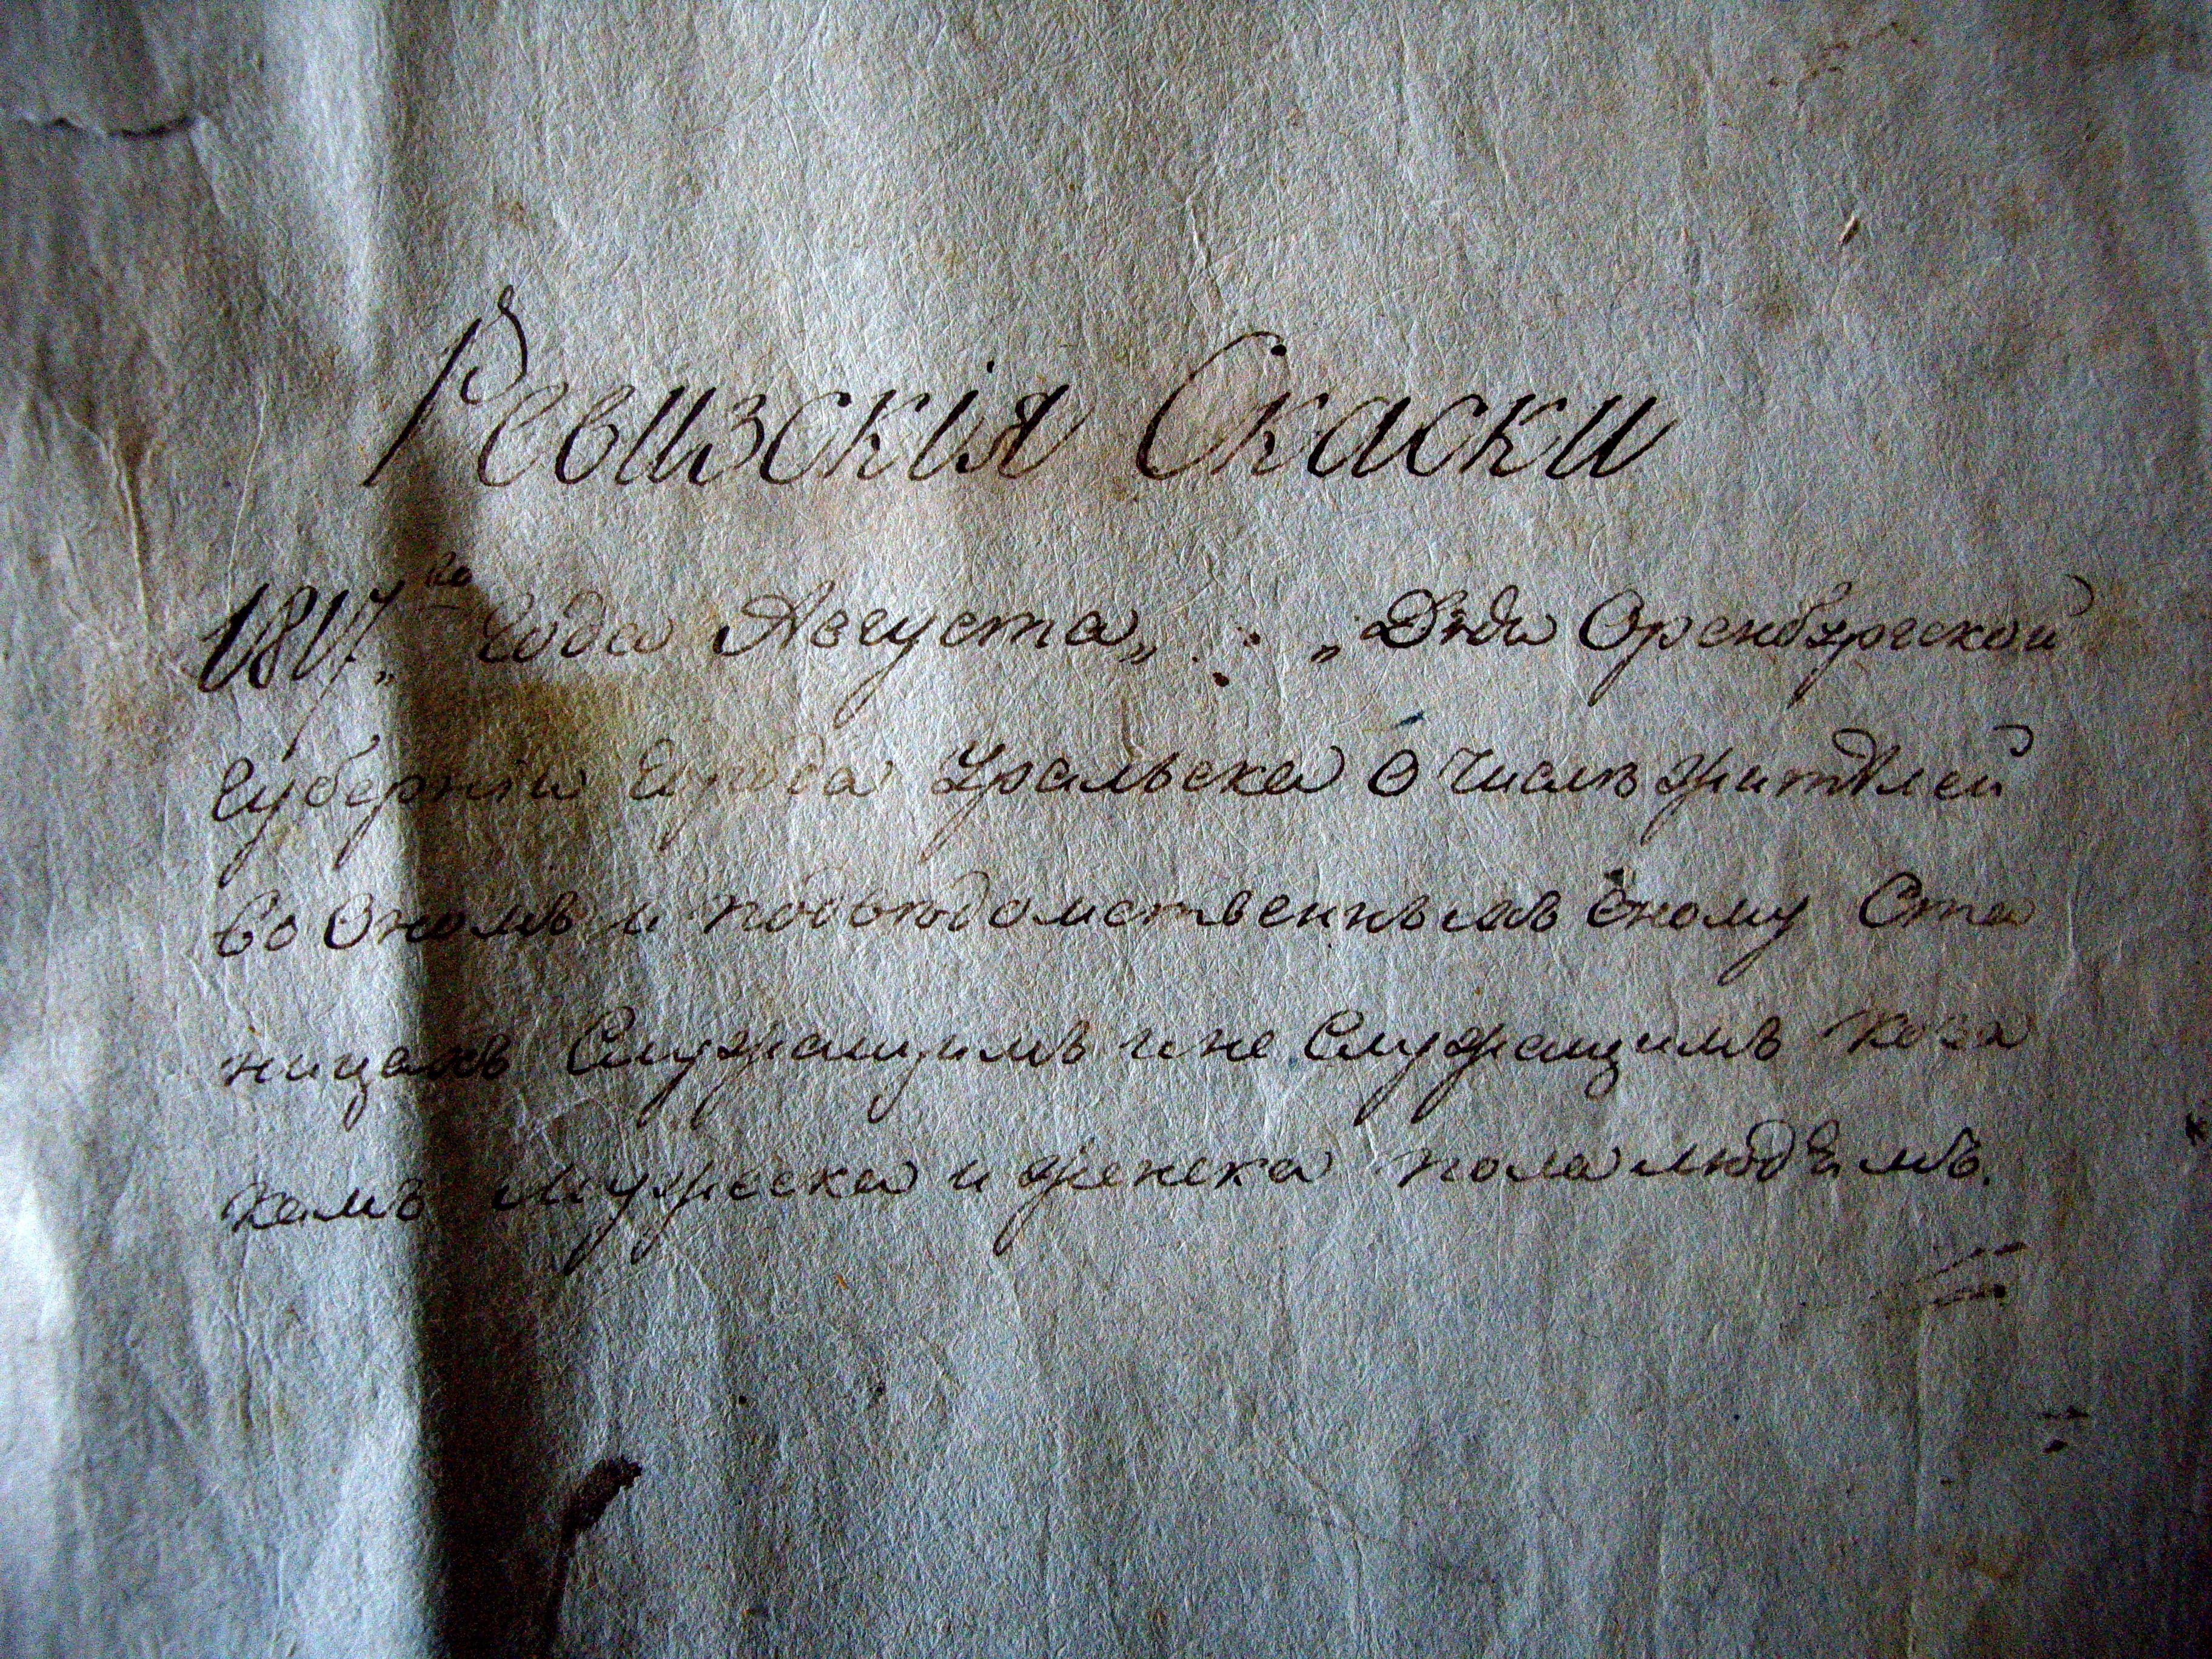 Ревизскія Скаски
1817,, го Года Августа,, ,, Дня Оренбургской
Губерніи Города Уральска О Числѣ жителей
во Ономъ и подведомственнымъ оному Ста
ницамъ Служащимъ и не Служащимъ коза
камъ мужеска и женска пола людемъ.